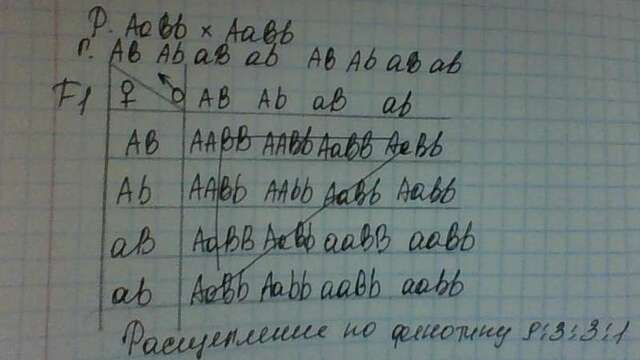 P. AaBb x AaBb
Г. AB Ab aB ab AB Ab aB ab
F1 ♀ ♂ AB Ab aB ab
AB AABB AABb AaBB AaBb
Ab AABb AAbb AaBb Aabb
aB AaBB AaBb aaBB aaBb
ab AaBb Aabb aaBb aabb
Расщепление по фенотипу 9:3:3:1